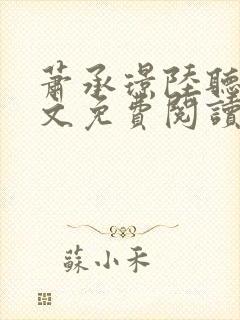 蕭承璟陸聽
文免費閱讀
蘇小禾